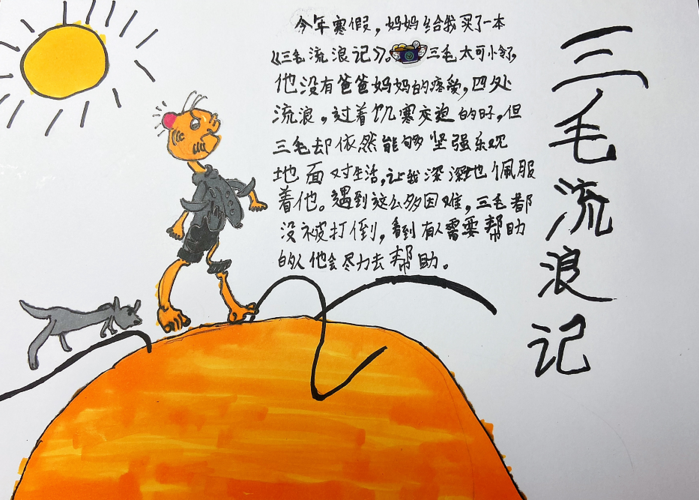 今年寒假，妈妈给我买了一本
《三毛流浪记》。三毛太可怜了，
他没有爸爸妈妈的疼爱，四处
流浪，过着饥寒交迫的日子，但
三毛却依然能够坚强乐观
地面对生活，让我深深地佩服
着他。遇到这么多困难，三毛都
没被打倒，看到有人需要帮助
的人他会尽力去帮助。
三毛流浪记